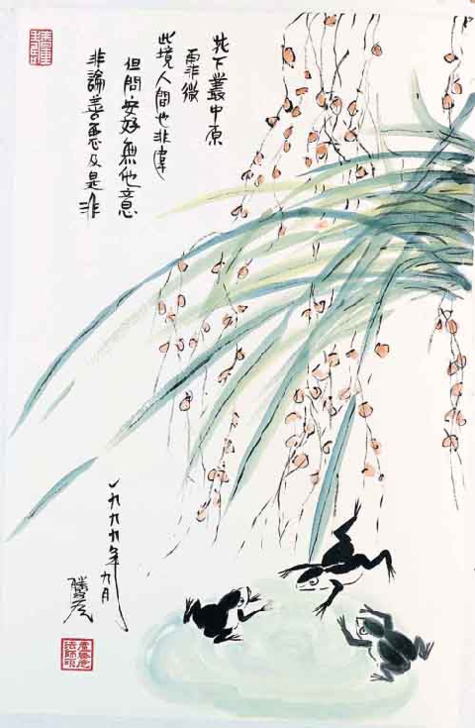 花下叢中原
非微
此境人間也非偉
但問安好無他意
非論善惡及是非
一九九九年九月
勝彥